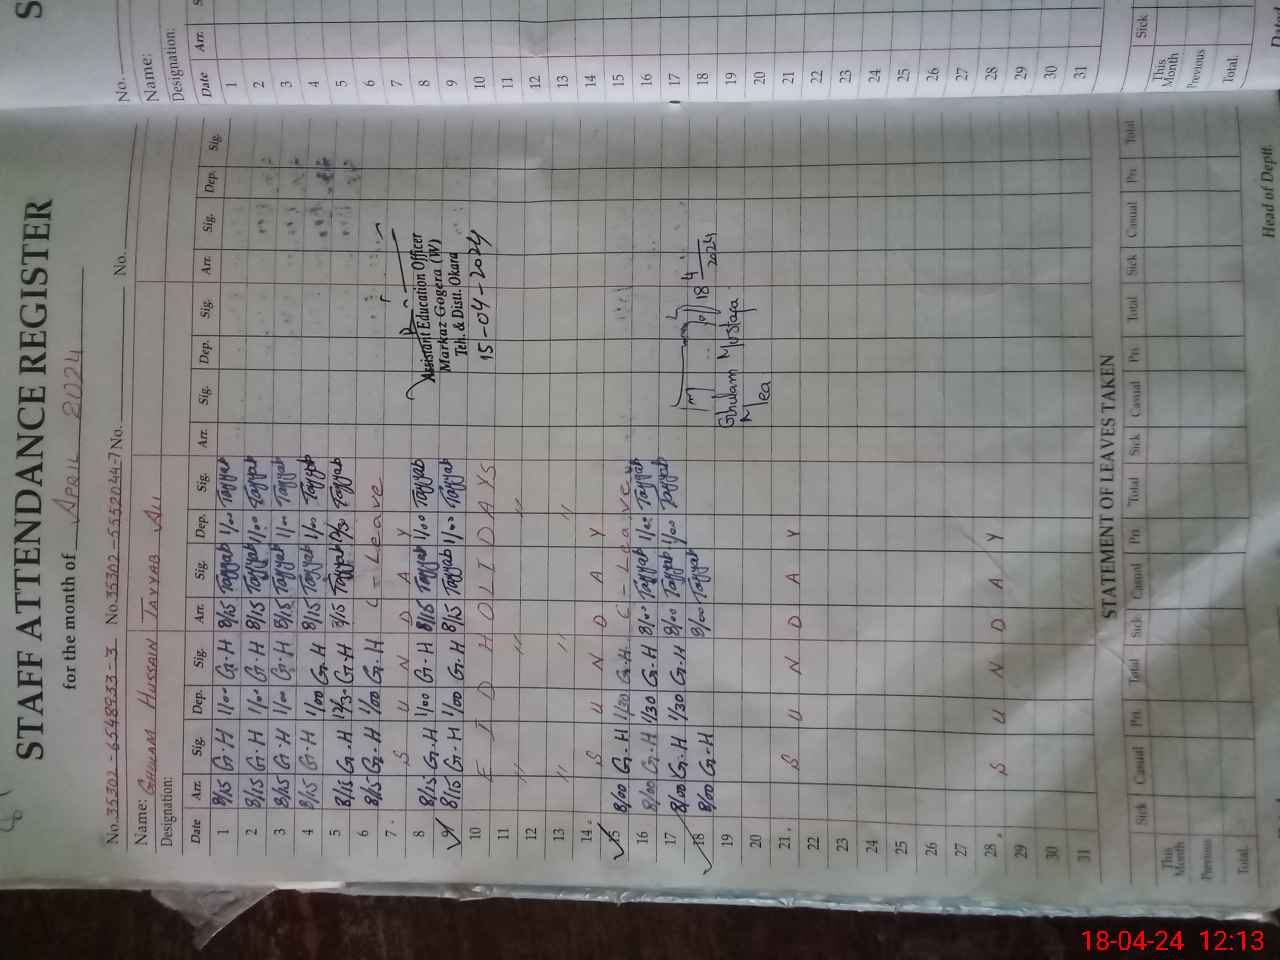 STAFF ATTENDANCE REGISTER
for the month of APRIL 2024
No. 35302-6548933-3 No. 35302-5552044-7 No. No.
Name: GHULAM HUSSAIN TAYYAB ALI
Designation:
Date Arr. Sig. Dep. Sig. Arr. Sig. Dep. Sig. Arr. Sig. Dep. Sig. Arr. Sig. Dep. Sig.
1 8/15 G.H 1/00 G.H 8/15 Tayyab 1/00 Tayyab
2 8/15 G.H 1/00 G.H 8/15 Tayyab 1/00 Tayyab
3 8/15 G.H 1/00 G.H 8/15 Tayyab 1/00 Tayyab
4 8/15 G.H 1/00 G.H 8/15 Tayyab 1/00 Tayyab
5 8/15 G.H 12/30 G.H 8/15 Tayyab 12/30 Tayyab
6 8/15 G.H 1/00 G.H C - Leave
7. S U N D A Y
8 8/15 G.H 1/00 G.H 8/15 Tayyab 1/00 Tayyab
9 8/15 G.H 1/00 G.H 8/15 Tayyab 1/00 Tayyab
Assistant Education Officer
Markaz Gogera (W)
Teh. & Distt. Okara
15-04-2024
10 E I D H O L I D A Y S
11 " " "
12
13 " " "
14. S U N D A Y
15 8/00 G.H 1/30 G.H C - Leave
16 8/00 G.H 1/30 G.H 8/00 Tayyab 1/00 Tayyab
17 8/00 G.H 1/30 G.H 8/00 Tayyab 1/00 Tayyab
18 8/00 G.H 8/00 Tayyab
18 4 2024
Ghulam Mustafa
Mea
19
20
21. S U N D A Y
22
23
24
25
26
27
28. S U N D A Y
29
30
31
STATEMENT OF LEAVES TAKEN
Sick Casual Pri. Total Sick Casual Pri. Total Sick Casual Pri. Total Sick Casual Pri. Total
This Month
Previous
Total
Head of Deptt.
No.
Name:
Designation:
Date Arr.
1
2
3
4
5
6
7
8
9
10
11
12
13
14
15
16
17
18
19
20
21
22
23
24
25
26
27
28
29
30
31
Sick
This Month
Previous
Total
18-04-24 12:13